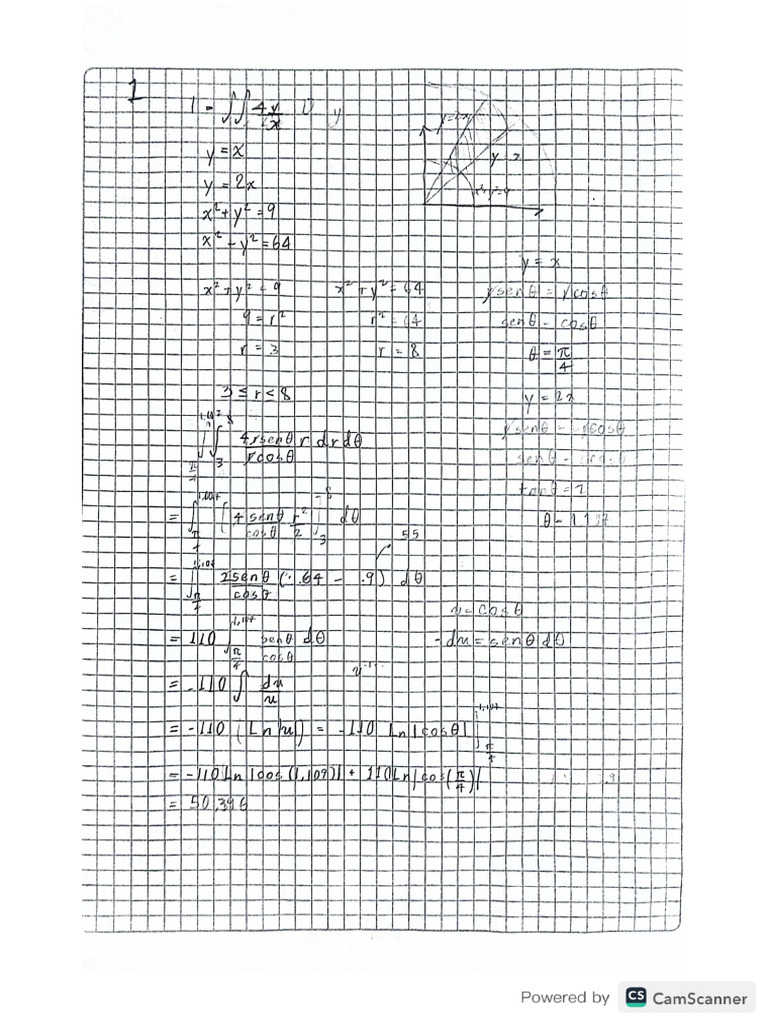 1
I = ∫∫ 4y/x D y
y = x
y = 2x
x² + y² = 9
x² - y² = 64
y=2x
y = x
x²+y²=9
x² + y² = 9
9 = r²
r = 3
x² + y² = 64
r² = 64
r = 8
y = x
rsenθ = rcosθ
senθ = cosθ
θ = π/4
3 ≤ r ≤ 8
y = 2x
tanθ = 2
θ = 1.107
∫_{π/4}^{1,107} ∫_3^8 4rsenθ/rcosθ r dr dθ
= ∫_{π/4}^{1,107} [4senθ/cosθ r²/2]_3^8 dθ
55
= ∫_{π/4}^{1,107} 2senθ/cosθ (64 - 9) dθ
u = cosθ
-du = senθ dθ
= 110 ∫_{π/4}^{1,107} senθ/cosθ dθ
= -110 ∫ du/u
= -110 (Ln|u|) = -110 Ln|cosθ| |_{π/4}^{1,107}
= -110Ln|cos(1,107)| + 110Ln|cos(π/4)|
= 50,396
Powered by CS CamScanner